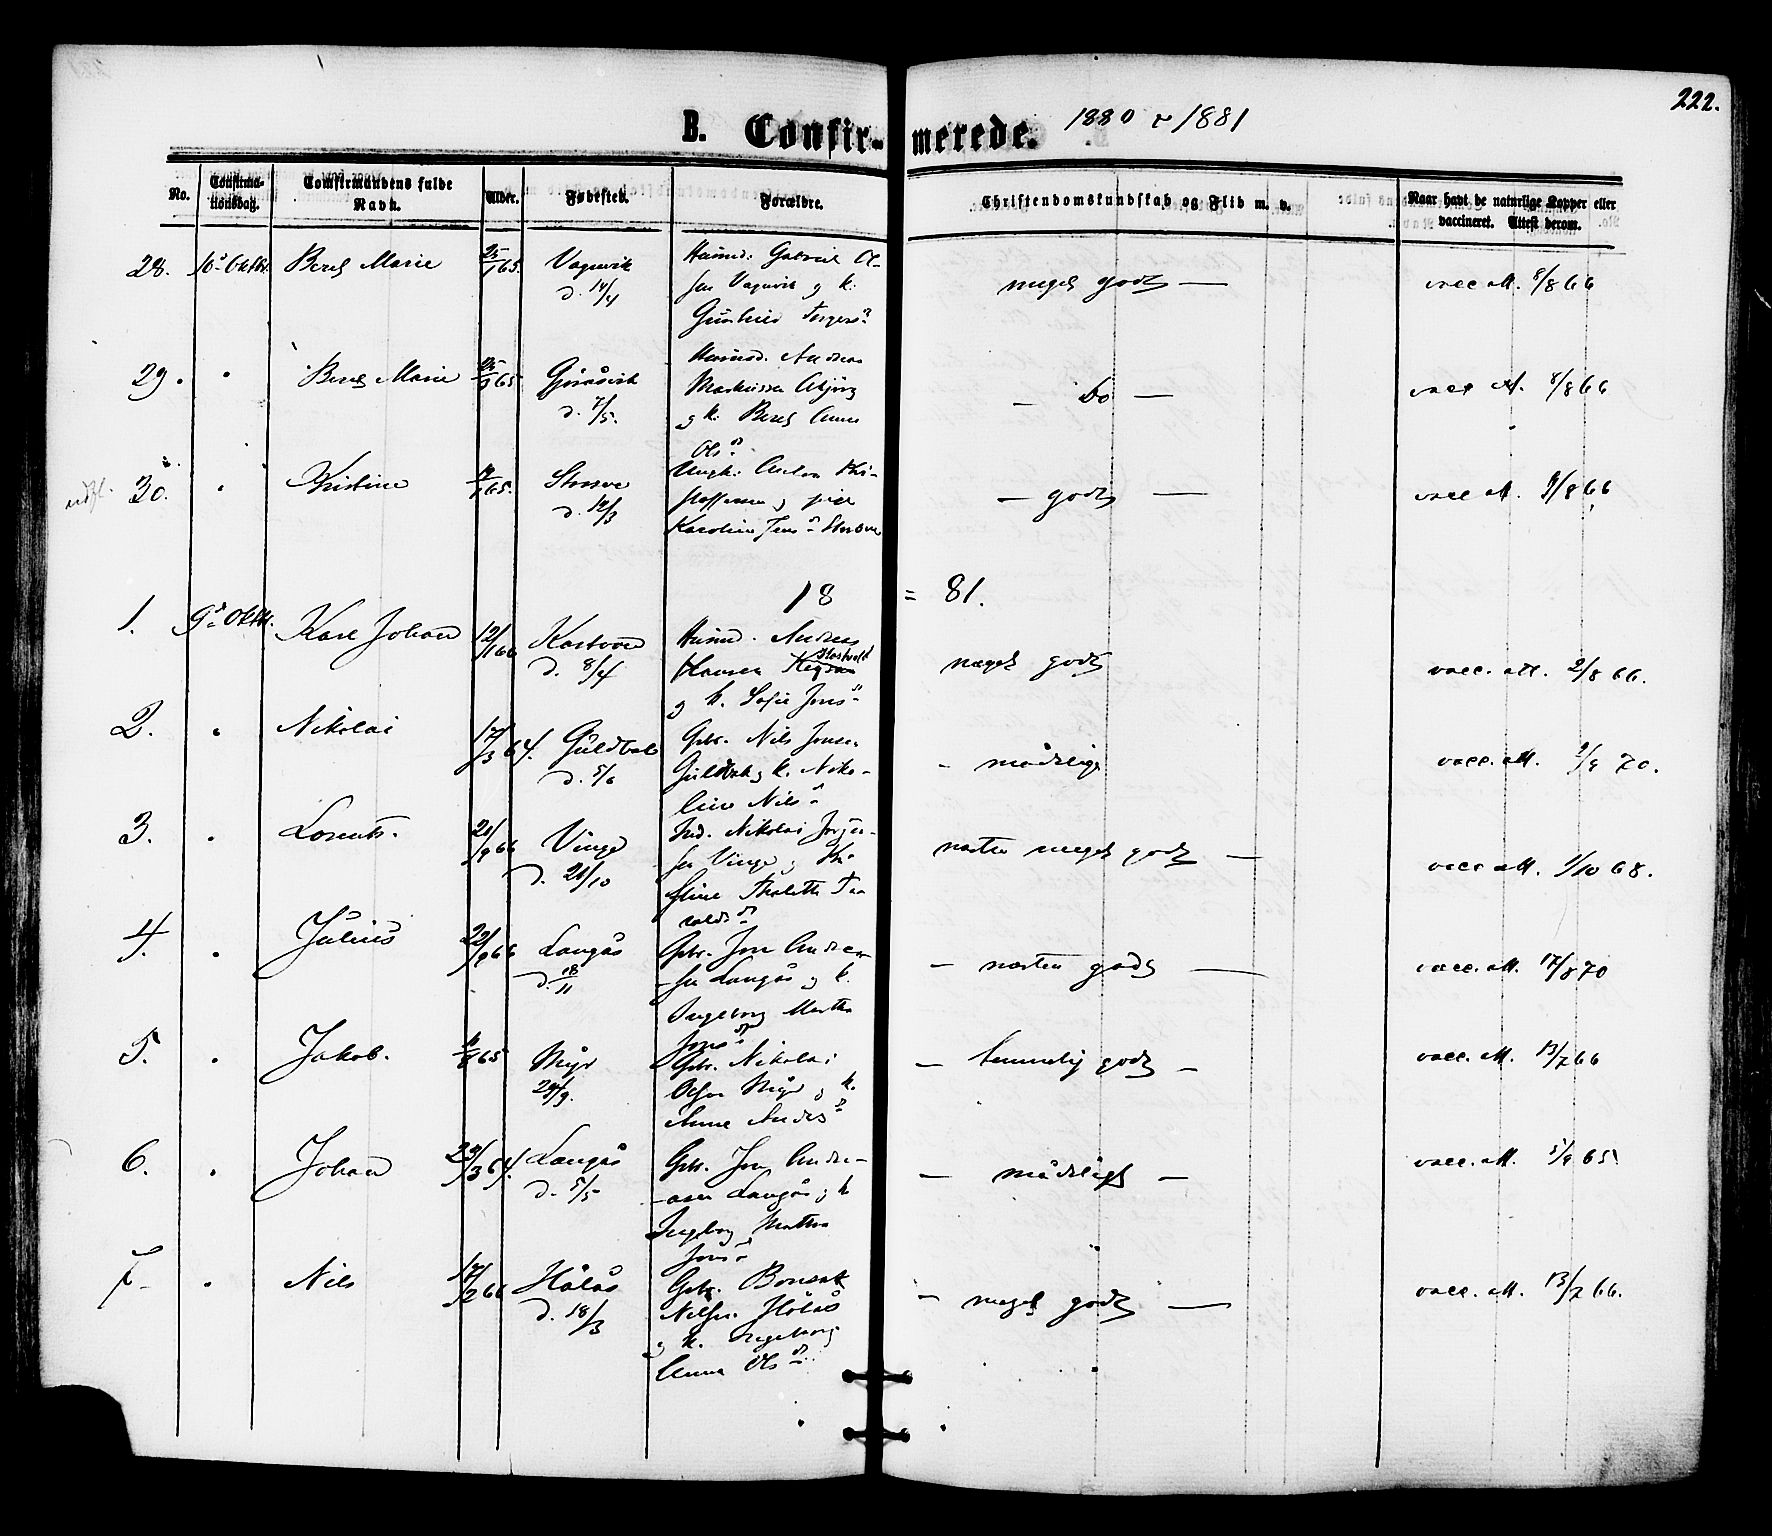 222.
B. Confir-merede. 1880 & 1881
No.
Confirmationsdag.
Comfirmandens fulde Navn.
Alder.
Fødested.
Forældre.
Christendomskundskab og Flid m. v.
Naar havt de naturlige Kopper eller vaccineret. Attest derom.
28. 10de Oktbr. Berit Marie 25/1 65. Vagnvik d. 14/4
Gabriel Ol-
sen Vagnvik og k.
meget godt —
vacc att. 8/8 66
29. " Berit Marie 65 d. 7/5.
Husmd. Andreas
og k. Berit Anna
Ols d.
— Do —
vacc att. 8/8 66
30. " Kristine 65. Storøve d. 12/3
Ungk. Anton Kri-
stoffersen og pige
Karoline Jens d. Storøve
— godt —
vacc att. 9/8 66
18 = 81.
1. 9de Oktbr. Karl Johan 12/1 66 d. 8/4
Husmd. Andreas
Hansen
og k. Sofie Jons d.
meget godt
vacc. att. 2/8 66.
2. " Nikolai 17/3 64. Guldbak d. 5/6
Gbr. Nils Jonsen
Guldbak og k. Niko-
line Nils d.
- mådelig
vacc. att. 70.
3. " Lorents. 21/9 66 Vinge d. 21/10
Ind. Nikolai Jørgen-
sen Vinge og Kri-
stine
næsten meget godt —
vacc att. 1/10 68.
4. " Julius 22/9 66 Langås d. 18/11
Gbr. Jon Andrea-
sen Langås og k.
Ingeborg Martha
Jons d.
— næsten godt —
vacc. att. 17/8 70
5. " Jakob. 65 Myr 24/9.
Gbr. Nikolai
Olsen Myr og k.
Anne Anders d.
— temmelig godt —
vacc. att. 13/7 66
6. " Johan 23/3 64. Langås d. 5/5
Gbr. Jon Andre-
asen Langås og k
Ingeborg Martha
Jons d.
— mådeligt —
vacc. att. 5/9 65
7. " Nils 17/2 66 Hålås d. 18/3
Gbr. Bonsak
Nilsen Hålås
og k. Ingeborg
Anna Ols d.
— meget godt —
vacc. att. 13/7 66.